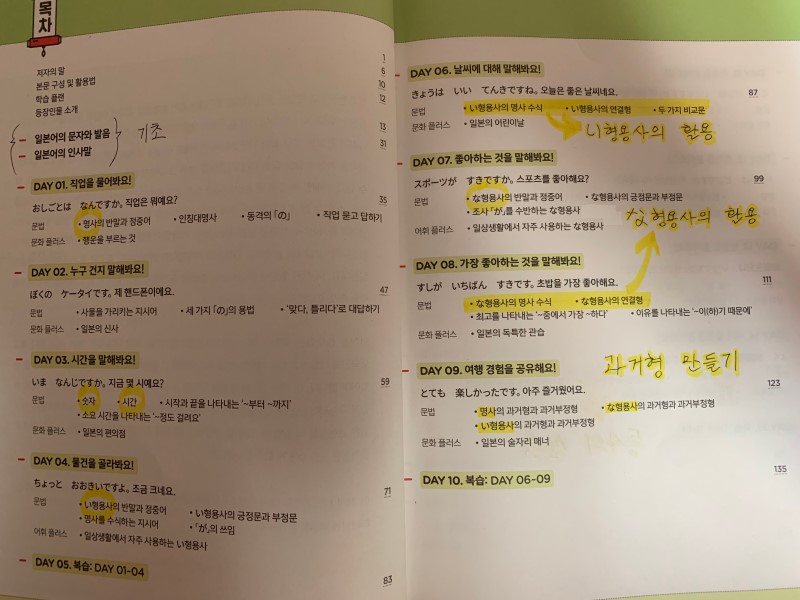 목차
저자의 말 1
본문 구성 및 활용법 6
학습 플랜 10
등장인물 소개 12
일본어의 문자와 발음 13
일본어의 인사말 31
기초
DAY 01. 직업을 물어봐요!
おしごとは なんですか。 직업은 뭐예요? 35
문법 • 명사의 반말과 정중어 • 인칭대명사 • 동격의 「の」 • 직업 묻고 답하기
문화 플러스 • 행운을 부르는 것
DAY 02. 누구 건지 말해봐요!
ぼくの ケータイです。 제 핸드폰이에요. 47
문법 • 사물을 가리키는 지시어 • 세 가지 「の」의 용법 • '맞다, 틀리다'로 대답하기
문화 플러스 • 일본의 신사
DAY 03. 시간을 말해봐요!
いま なんじですか。 지금 몇 시예요? 59
문법 • 숫자 • 시간 • 시작과 끝을 나타내는 '~부터 ~까지'
• 소요 시간을 나타내는 '~정도 걸려요'
문화 플러스 • 일본의 편의점
DAY 04. 물건을 골라봐요!
ちょっと おおきいですよ。 조금 크네요. 71
문법 • い형용사의 반말과 정중어 • い형용사의 긍정문과 부정문
• 명사를 수식하는 지시어 • 「が」의 쓰임
어휘 플러스 • 일상생활에서 자주 사용하는 い형용사
DAY 05. 복습: DAY 01-04 83
DAY 06. 날씨에 대해 말해봐요!
きょうは いい てんきですね。 오늘은 좋은 날씨네요. 87
문법 • い형용사의 명사 수식 • い형용사의 연결형 • 두 가지 비교문
문화 플러스 • 일본의 어린이날
い형용사의 활용
DAY 07. 좋아하는 것을 말해봐요!
スポーツが すきですか。 스포츠를 좋아해요? 99
문법 • な형용사의 반말과 정중어 • な형용사의 긍정문과 부정문
• 조사 「が」를 수반하는 な형용사
어휘 플러스 • 일상생활에서 자주 사용하는 な형용사
な형용사의 활용
DAY 08. 가장 좋아하는 것을 말해봐요!
すしが いちばん すきです。 초밥을 가장 좋아해요. 111
문법 • な형용사의 명사 수식 • な형용사의 연결형
• 최고를 나타내는 '~중에서 가장 ~하다' • 이유를 나타내는 '~이(하)기 때문에'
문화 플러스 • 일본의 독특한 관습
DAY 09. 여행 경험을 공유해요!
과거형 만들기
とても 楽しかったです。 아주 즐거웠어요. 123
문법 • 명사의 과거형과 과거부정형 • な형용사의 과거형과 과거부정형
• い형용사의 과거형과 과거부정형
문화 플러스 • 일본의 술자리 매너
DAY 10. 복습: DAY 06-09 135